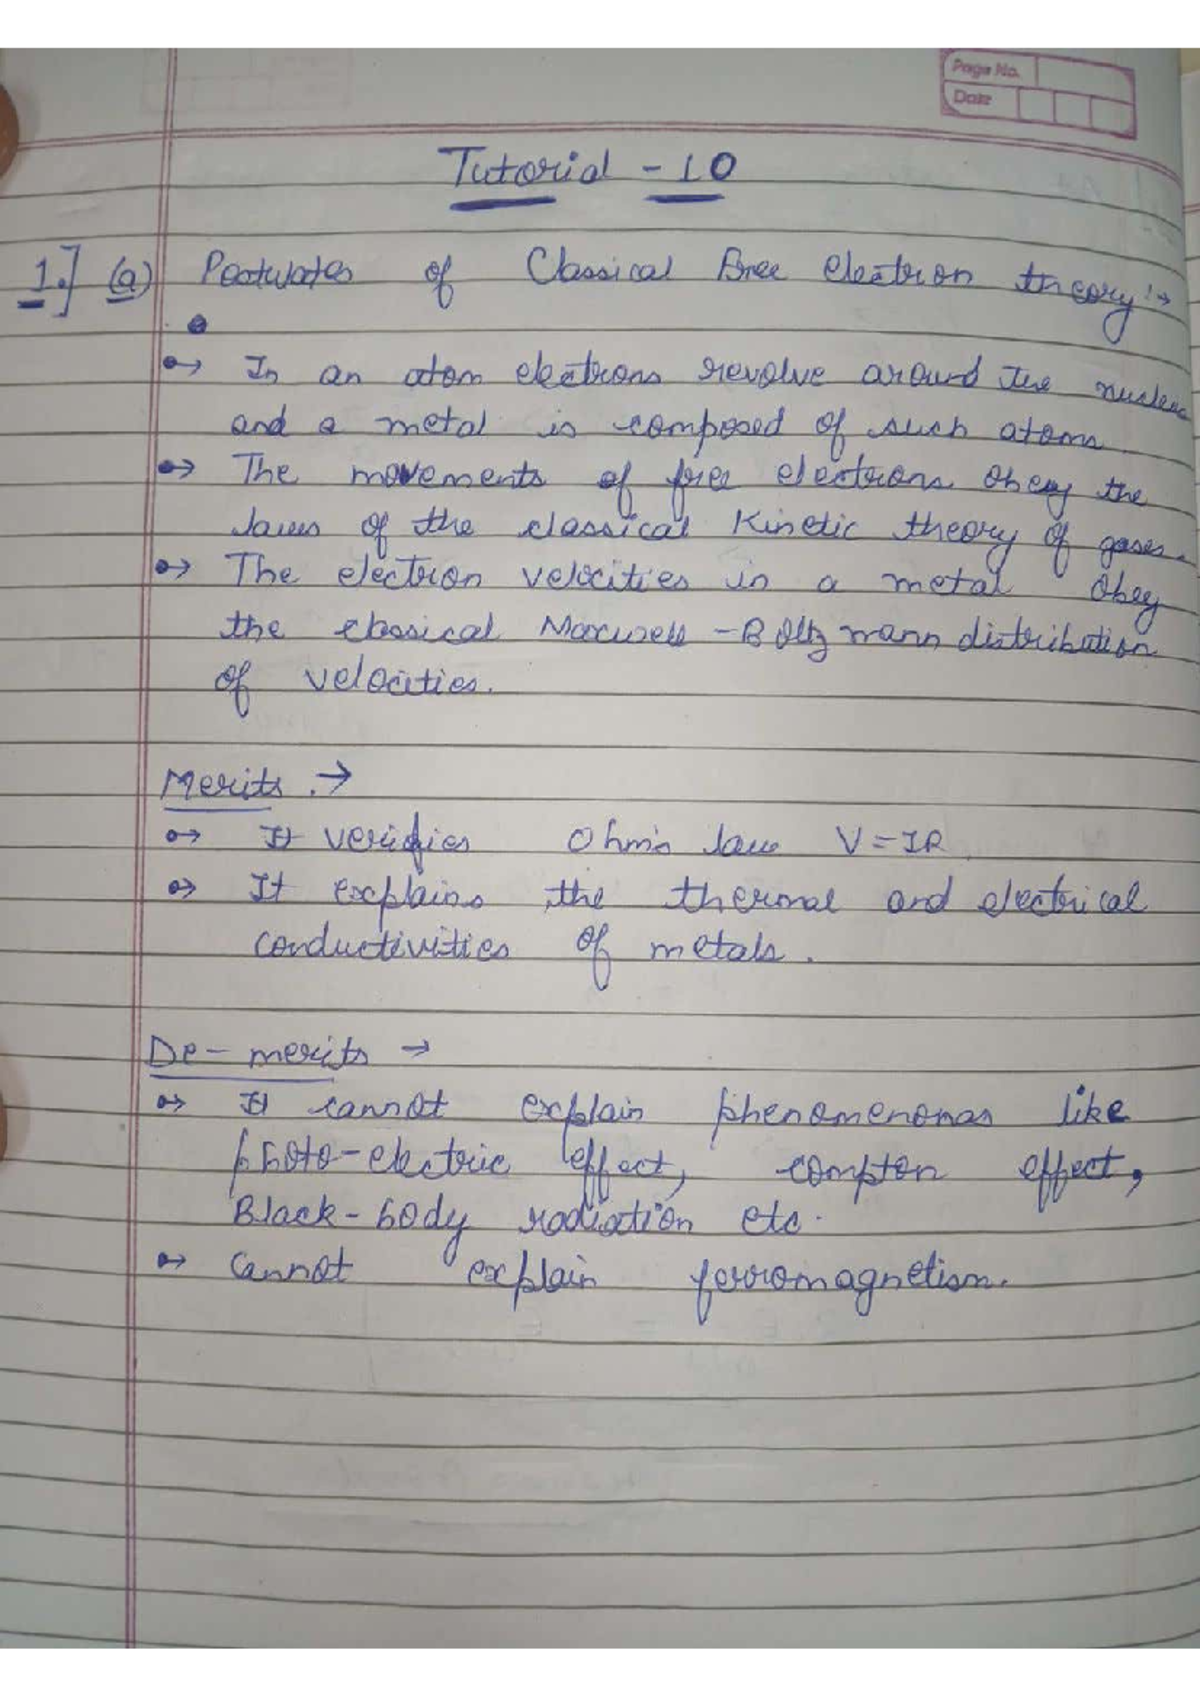 Page No.
Date
Tutorial - 10
1.] (a) Postulates of Classical Free electron theory :→
→ In an atom electrons revolve around the nucleus
and a metal is composed of such atoms.
→ The movements of free electrons obey the
laws of the classical Kinetic theory of gases.
→ The electron velocities in a metal obey
the classical Maxwell - Boltzmann distribution
of velocities.
Merits. →
→ It verifies Ohm's law V = IR
→ It explains the thermal and electrical
conductivities of metals.
De - merits →
→ It cannot explain phenomenonas like
photo-electric effect, compton effect,
Black-body radiation etc.
→ Cannot explain ferromagnetism.